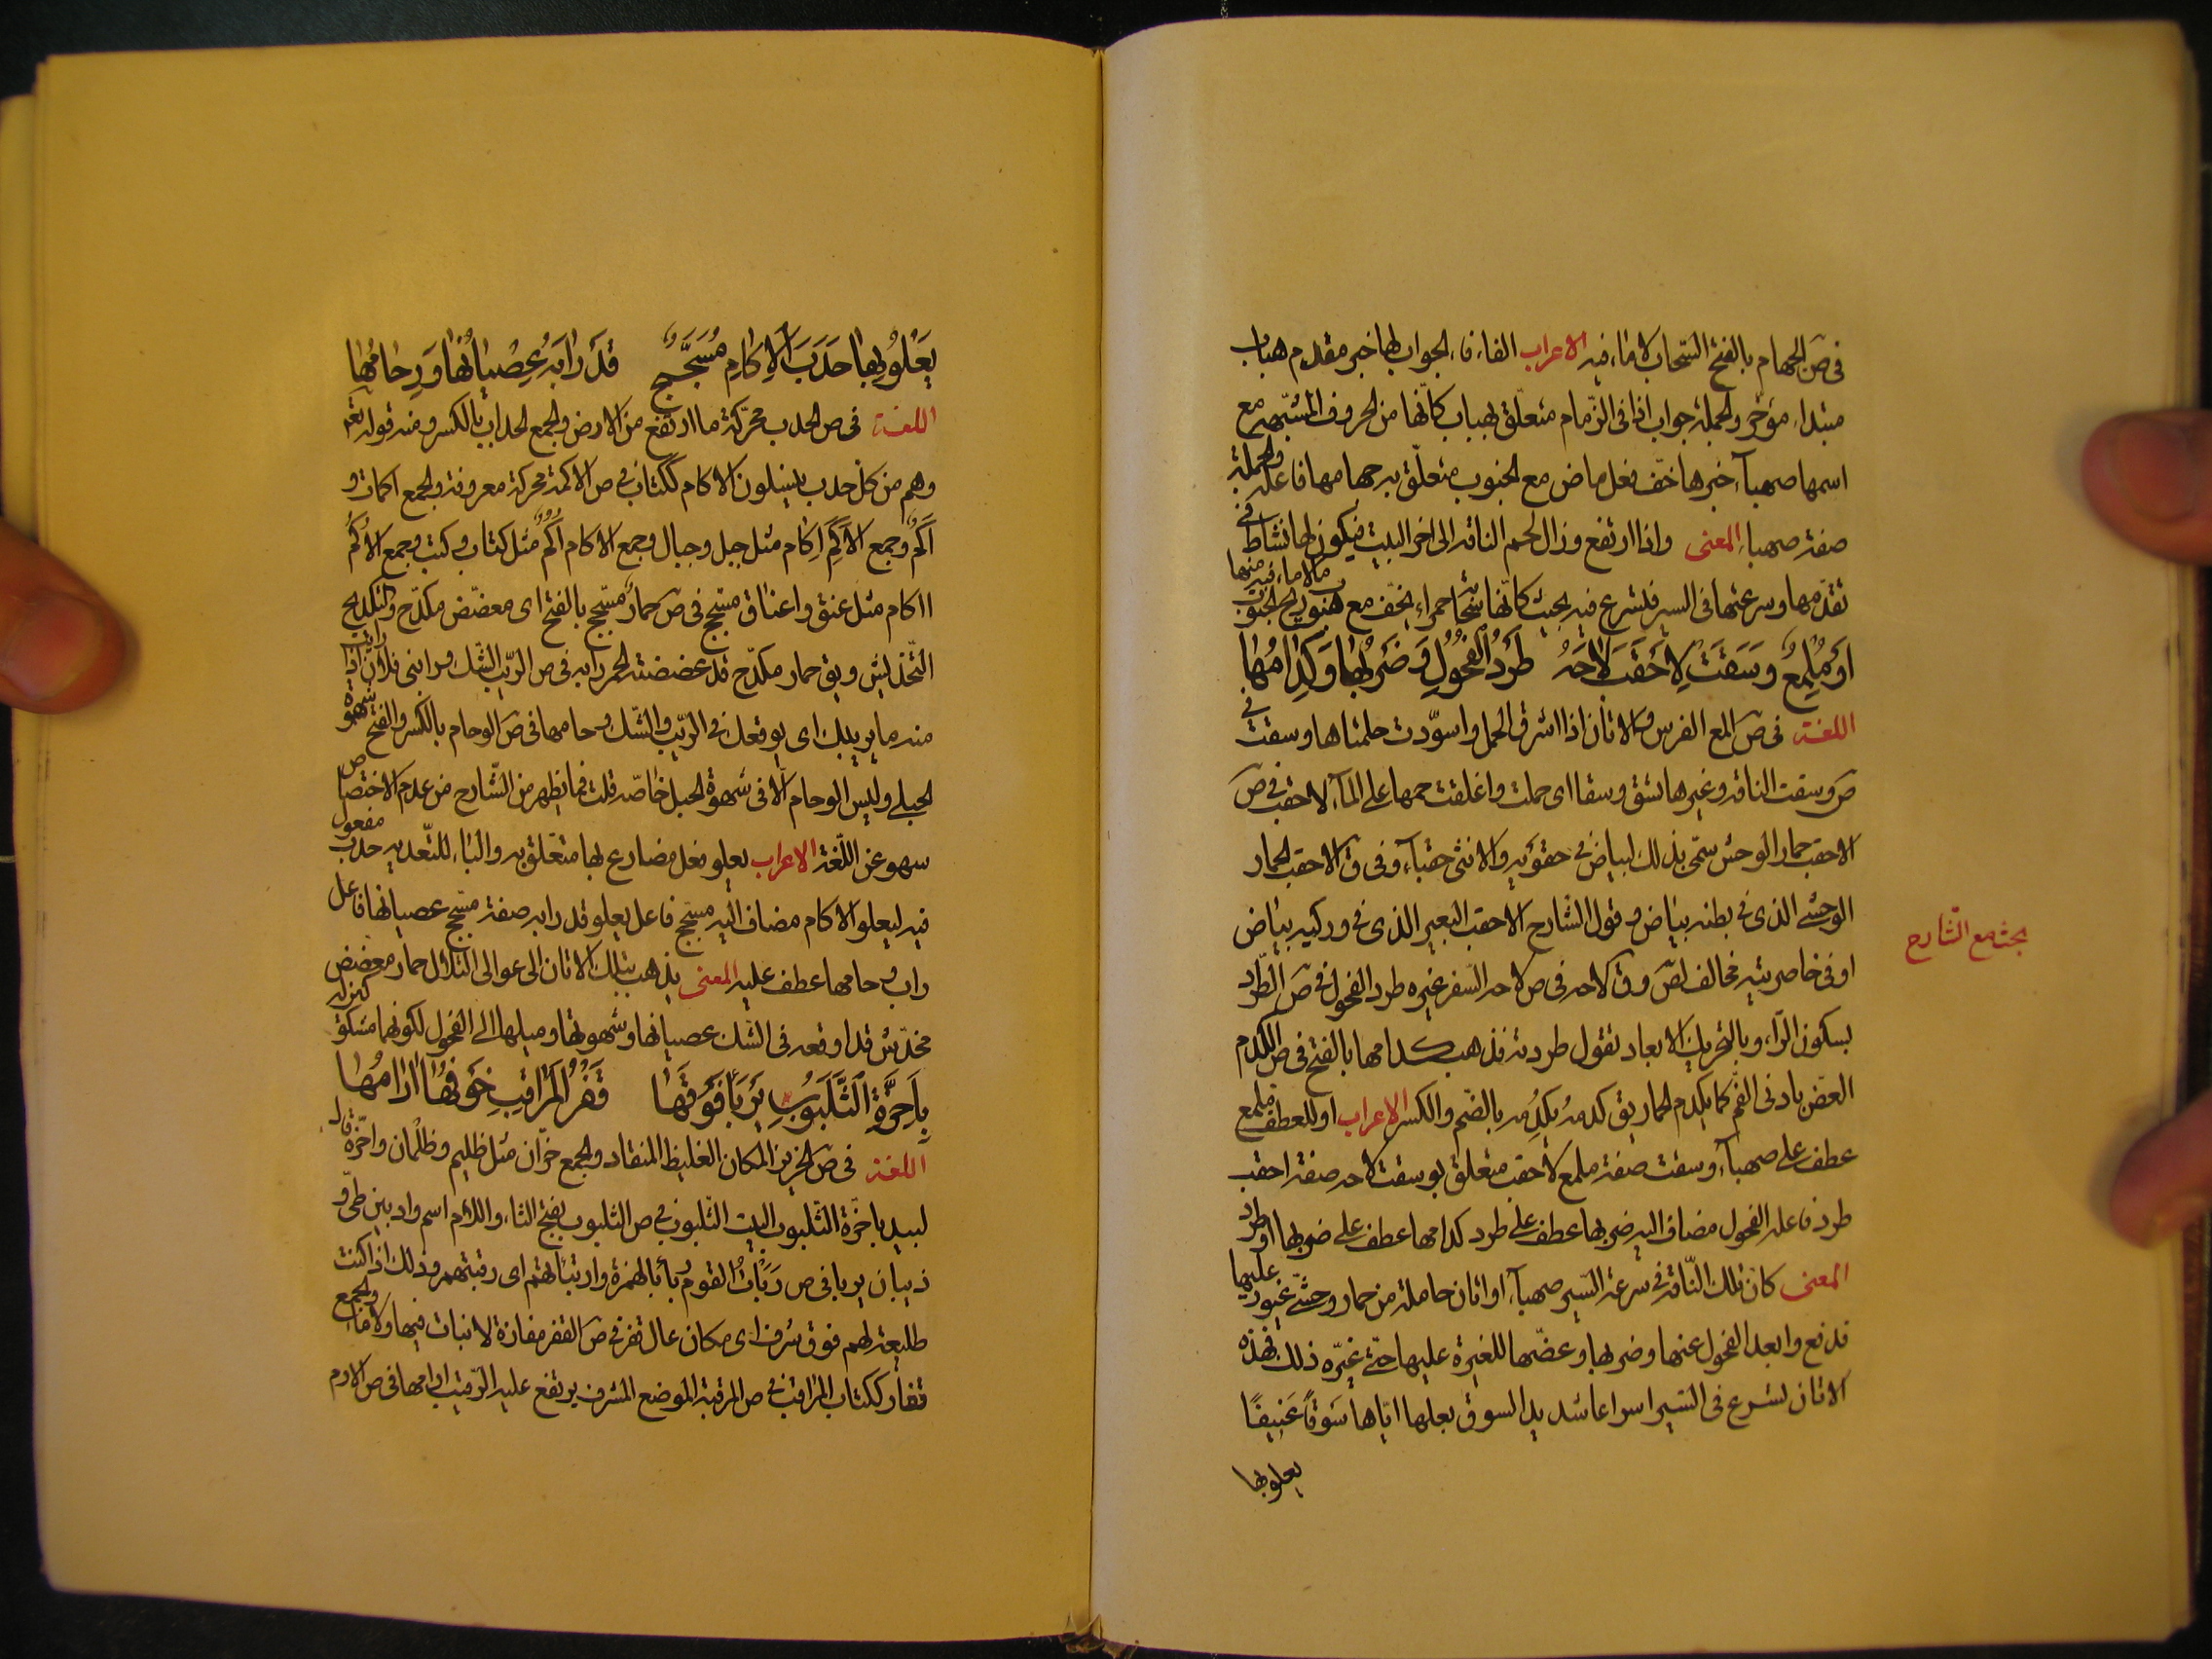 فی ص الجهام بالفتح السّحاب لا ماء فیه الاعراب الفاء فاء الجواب لها خبر مقدم هباب
مبتداء مؤخر والجملة جواب اذا فی الزّمام متعلّق بهباب کانّها من الحروف المشبّهة مع
اسمها صهبآء خبرها خفّ فعل ماض مع الجنوب متعلّق به جهامها فاعله والجملة
صفة صهباء المعنی واذا ارتفع وزال لحم الناقة الی اخر البیت فیکون لها نشاط فی
تقدّمها وسرعتها فی السیر فلسرع فیه بحیث کانّها سحابة حمراء یخفّ مع هبوب ریح الجنوب
ما لا ماء فیه منها
اَوْ مُلْمِعٌ وَسَقَتْ لِاَحْقَبَ لَاحَهُ طَرْدُ الْفُحُولِ وَ ضَرْبُهَا وَکِدَامُهَا
اللغة فی ص المع الفرس والاتان اذا اشرق للحمل واسوّدت حلمتاها وسقت فی
ص وسقت الناقة وغیرها تسق وسقا ای حملت واغلقت رحمها علی المآء لاحقب فی ص
الاحقب حمار الوحش سمّی بذلک لبیاض فی حقویه والانثی حقبآء وفی ق الاحقب الحمار
الوحشی الذی فی بطنه بیاض و قول الشّارح الاحقب البعیر الذی فی ورکیه بیاض
بحث مع الشّارح
او فی خاصرتیه مخالف لص و ق لاحه فی ص لاحه السّفر غیره طرد الفحول فی ص الطّرد
بسکون الرّاء وبالتحریک الابعاد تقول طردته فذهب کدامها بالفتح فی ص الکدم
العضّ بادنی الفم کما یکدم الحمار یق کدمه یکدُمه بالضّم والکسر الاعراب او للعطف ملمع
عطف علی صهبآء وسقت صفة ملمع لاحقب متعلق بوسقت لاحه صفة احقب
طرد فاعله الفحول مضاف الیه ضربها عطف علی طرد کدامها عطف علی ضربها او طرد
المعنی کانّ تلک النّاقة فی سرعة السّیر صهبآء او اتان حاملة من حمار وحشیّ غیور علیها
فدفع وابعد الفحول عنها وضربها وعضّها للغیرة علیها حتّی غیّره ذلک فهذه
الاتان تسرع فی السّیر اسراعا شدیدا لسوق بعلها ایّاها سَوْقًا عَنِیفًا
یعلو بها
یَعْلُو بِهَا حَدَبَ الْاِکَامِ مُسَحَّجٌ قَدْ رَابَهُ عِصْیَانُهَا وَوِحَامُهَا
اللغة فی ص الحدب محرّکة ما ارتفع من الارض والجمع الحداب بالکسر ومنه قوله تعم
وهم من کل حدب ینسلون الاکام ککتاب فی ص الاکمة محرکة معروفة والجمع اکمات و
اَکَمٌ وجمع الاَکَمِ اِکام مثل جبل وجبال وجمع الاکام اُکُمٌ مثل کتاب وکتب وجمع الاُکُم
ااکام مثل عنق واعناق مسحّج فی ص حمارٌ مسحّج بالفتح ای معضّض مکدّح والتکدیح
التّخدیش ویق حمار مکدّح قد عضضته الحمر رابه فی ص الرّیب الشّک ورابنی فلان اذا رایت
منه ما یریبک ای یوقعک فی الرّیب والشّک وحامها فی ص الوحام بالکسر والفتح شهوة
الحبلی ولیس الوحام الّا فی شهوة الحبل خاصّة قلت فما یظهر من الشّارح من عدم الاختصاص
سهو عن اللّغة الاعراب یعلو فعل مضارع بها متعلّق به والبآء للتّعدیه حدب مفعول
فیه لیعلو الاکام مضاف الیه مسحّج فاعل یعلو قد رابه صفة مسحّج عصیانها فاعل
راب وحامها عطف علیه المعنی یذهب بتلک الاتان الی عوالی التلال حمار معضض
مخدّش قد اوقعه فی الشک عصیانها وشهوتها ومیلها الی الفحول لکونها
بِاَحِزَّةِ الثَّلَبُوتِ یَرْبَأُ فَوْقَهَا قَفْرَ الْمَرَاقِبِ خَوْفُهَا اٰرَامُهَا
اللغة فی ص الحزیز المکان الغلیظ المنقاد والجمع حزّان مثل ظلیم وظلمان واحزّة قال
لبید باحزّة الثّلبوت البیت الثّلبوت فی ص الثلبوت بفتح الثاء واللّام اسم واد بین طیّ و
ذبیان یربا فی ص رَبَأْتُ القومَ رَبأً بالهمزة وارتبأتهم ای رقبتهم وذلک اذا کنت
طلیعة لهم فوق شرف ای مکان عال قفر فی ص القفر مفازة لا نبات فیها ولا ماء والجمع
قفار ککتاب المراقب فی ص المرقبة الموضع المشرف یرتفع علیه الرّقیب ارامها فی ص الارم